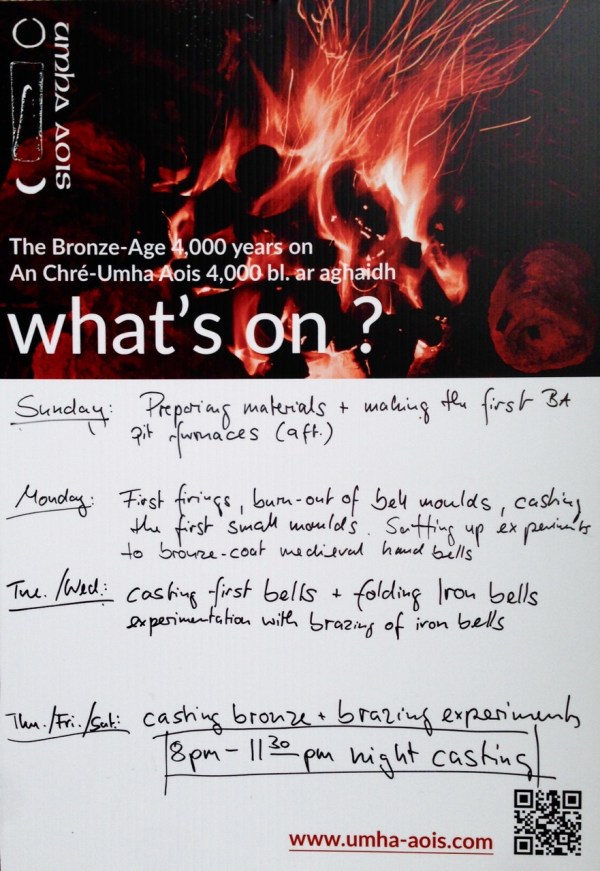 umha aois
The Bronze-Age 4,000 years on
An Chré-Umha Aois 4,000 bl. ar aghaidh
what's on ?
Sunday: Preparing materials + making the first BA
pit furnaces (aft.)
Monday: First firings, burn-out of bell moulds, casting
the first small moulds. Setting up experiments
to bronze-coat medieval hand bells
Tue./Wed.: casting first bells + folding Iron bells
experimentation with brazing of iron bells
Thu./Fri./Sat.: casting bronze + brazing experiments
8pm - 11 30 pm night casting
www.umha-aois.com